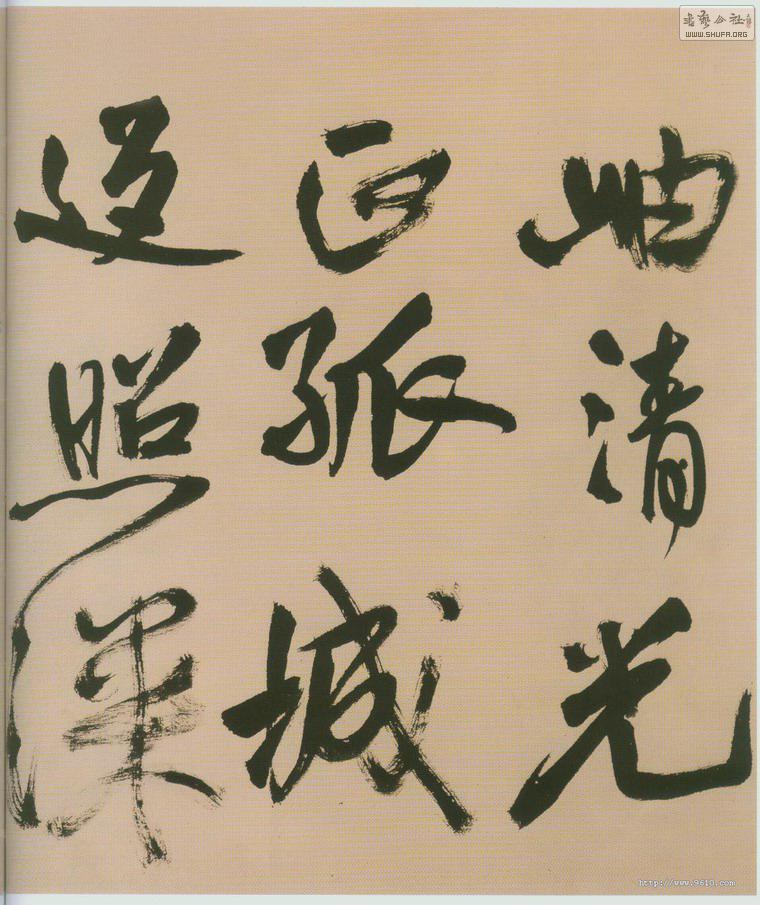 岫清光
正孤城
返照深
書藝公社
WWW.SHUFA.ORG
http://www.9610.com